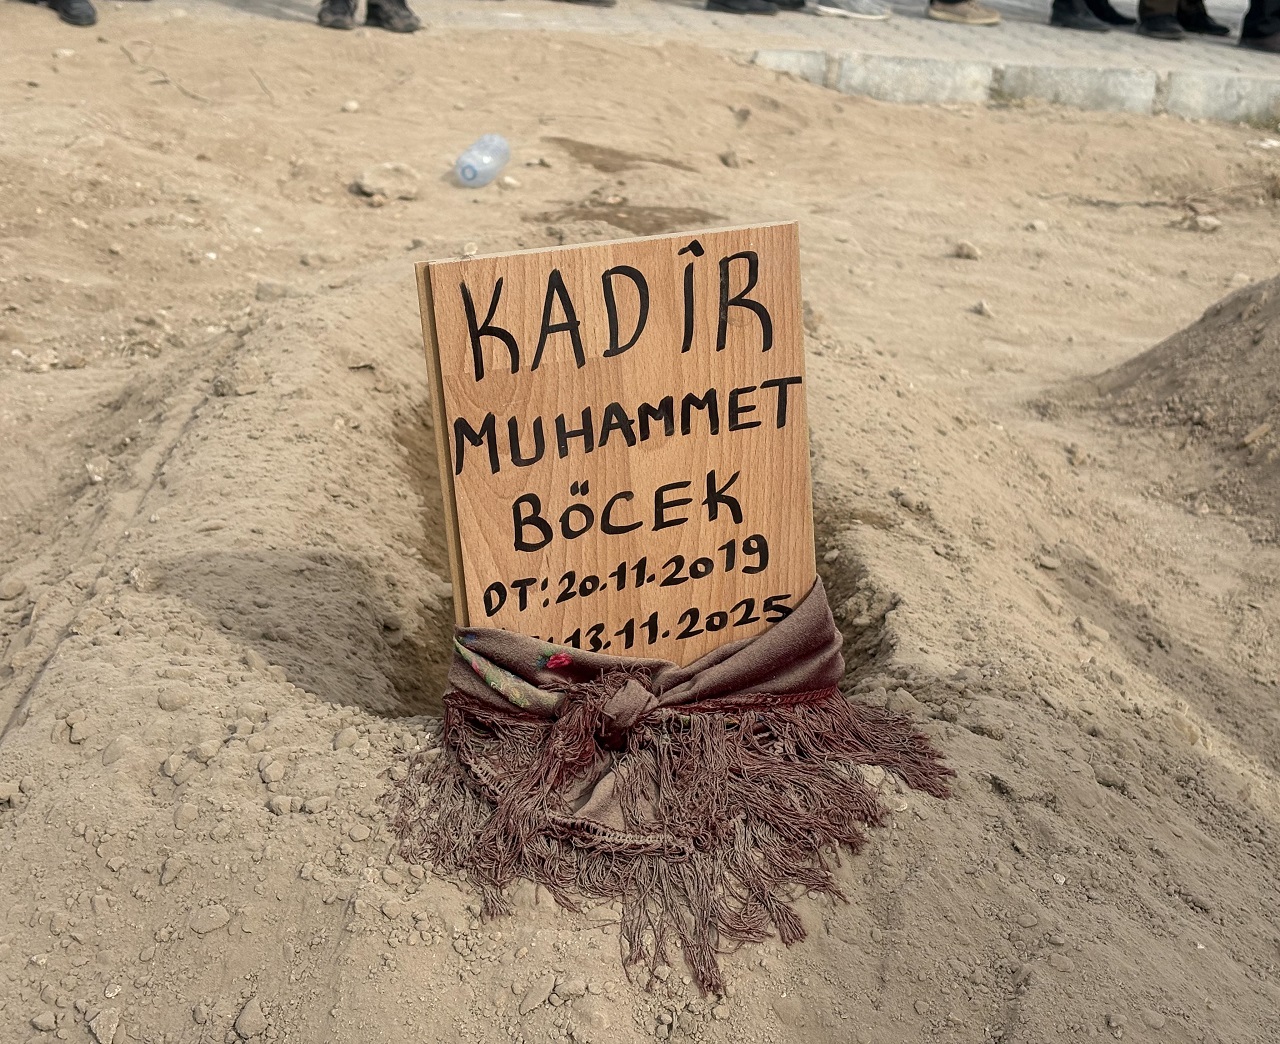 KADÎR
MUHAMMET
BÖCEK
DT: 20.11.2019
: 13.11.2025